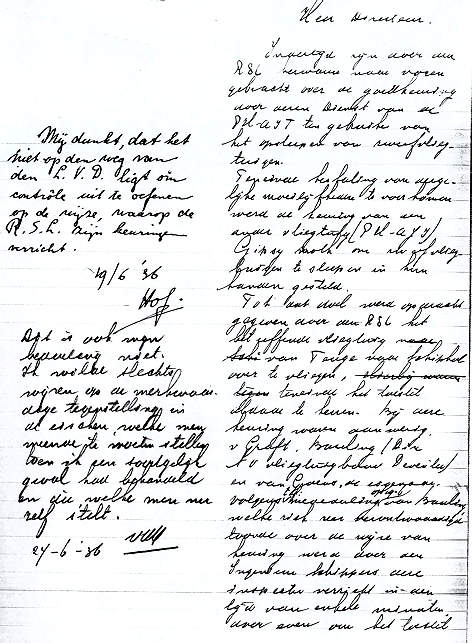 Heer Directeur.
Mij dunkt, dat het
niet op den weg van
den L.V.D. ligt om
contrôle uit te oefenen
op de wijze, waarop de
R.S.L. zijn keuringen
verricht.
19/6 '36
Hof.
Dat is ook mijn
bedoeling niet.
Ik wilde slechts
wijzen op de merkwaar-
dige tegenstelling in
de eischen welke men
meende te moeten stellen
toen ik een soortgelijk
geval had behandeld
en die welke men nu
zelf stelt.
27-6-36
zijn door den
RSL bezwaren naar voren
gebracht over de goedkeuring
door dezen Dienst van de
PH-AJT ten gebruike van
het opsleepen van zweefvlieg-
tuigen.
Teneinde herhaling van derge-
lijke moeilijkheden te voorkomen
werd de keuring van een
ander vliegtuig (PH-AJJ)
Gipsy Moth om zweefvlieg-
tuigen te sleepen in hun
handen gesteld.
Tot dat doel werd opdracht
gegeven door den RSL het
betreffende vliegtuig
van naar Schiphol
over te vliegen,
teneinde het toestel
aldaar te keuren. Bij deze
keuring waren aanwezig
v Grafft. Bauling (Dir
N V vliegtuigbouw Deventer)
en van
volgens mededeeling van Bauling
welke zich zeer
toonde over de wijze van
keuring werd door den
Ingenieur Schippers deze
inspectie verricht in een
tijd van enkele minuten,
door even om het toestel